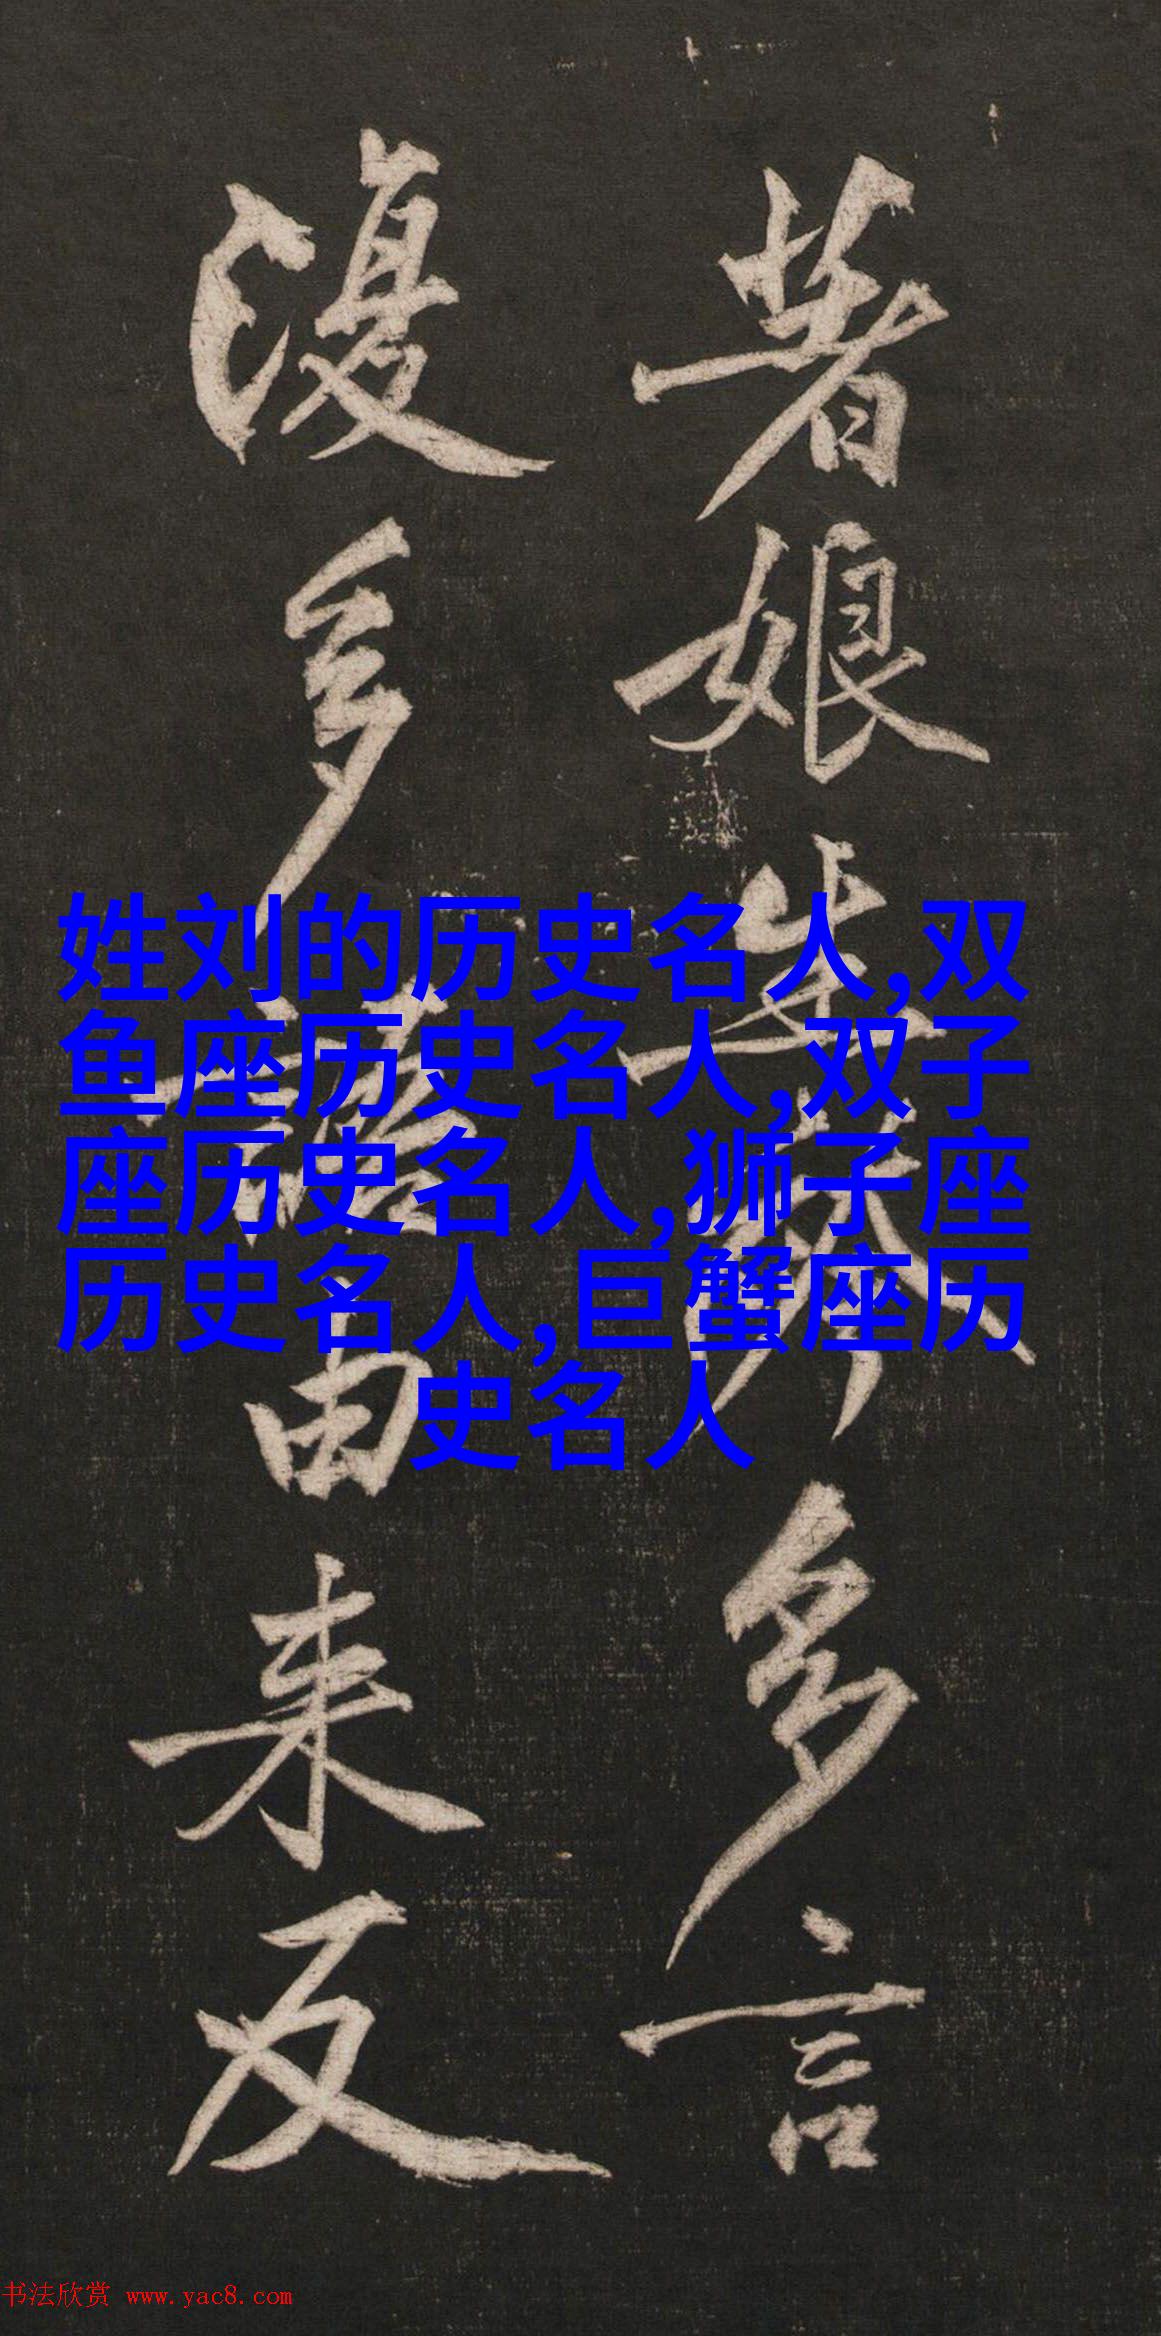 著娘生势多言
复多谲由来反
姓刘的历史名人,双
鱼座历史名人,双子
座历史名人,狮子座
历史名人,巨蟹座历
史名人
书法欣赏 www.yac8.com